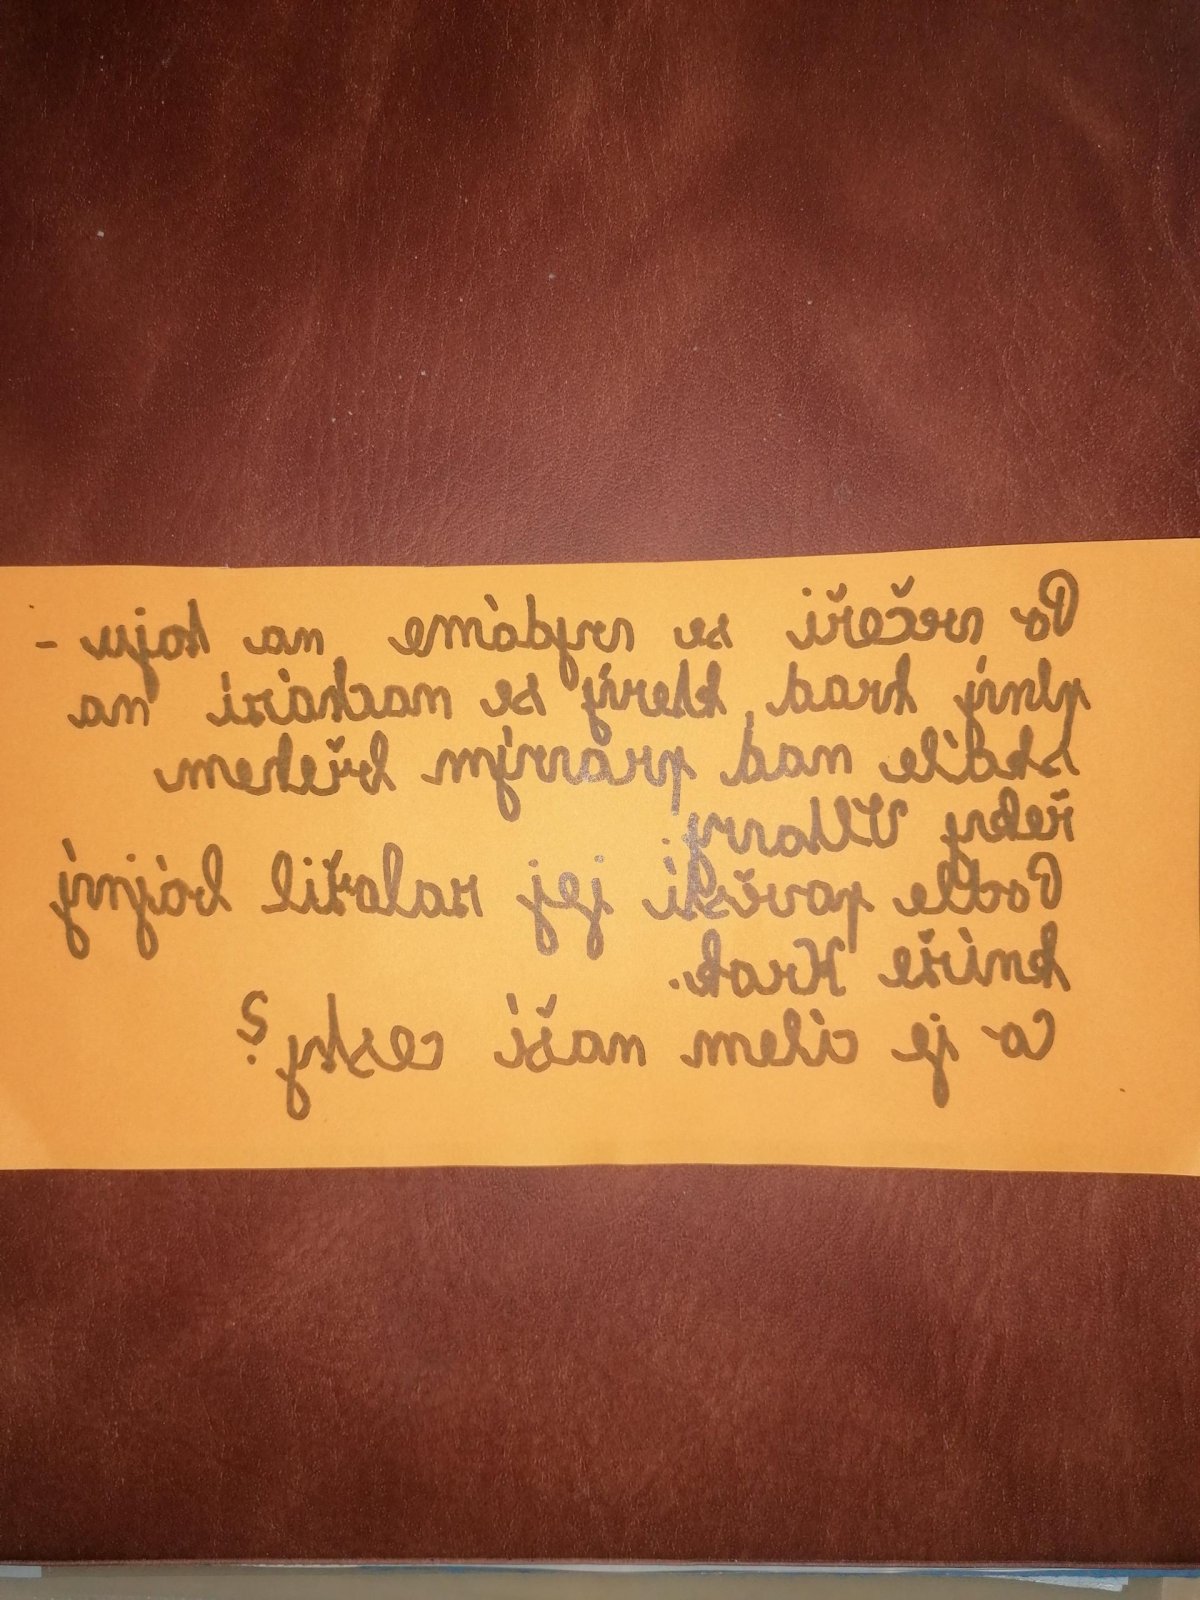 Po večeři se vydáme na hoju-
plný hrad, který se nachází na
skále nad pravým břehem
řeky Vltavy.
Podle pověsti jej založil bájný
kníže Krok.
Co je cílem naší cesky?